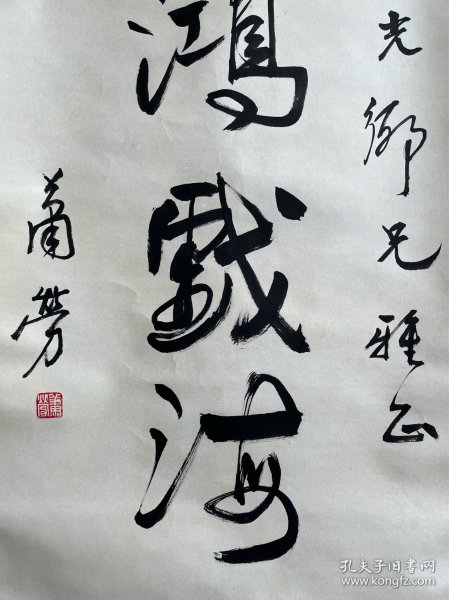 光卿兄雅正
鸿戏海
萧劳
孔夫子旧书网
www.kongfz.com